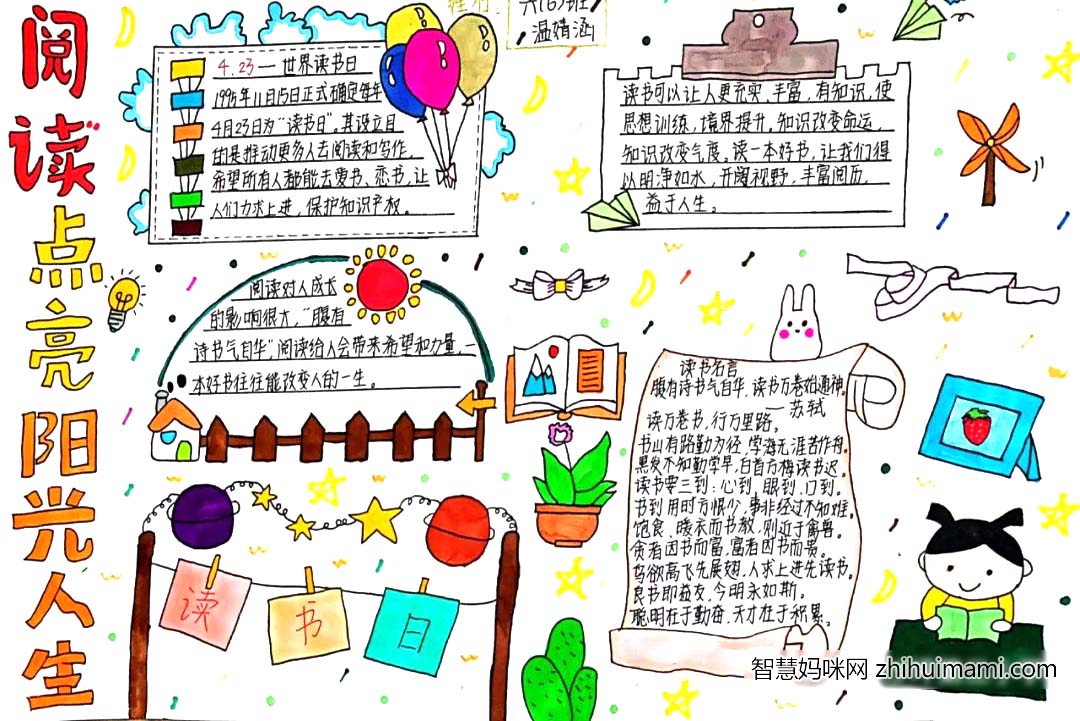 阅读点亮阳光人生
六(6)班
温婧涵
4.23—世界读书日
1995年11月15日正式确定每年
4月23日为“读书日”。其设立目
的是推动更多人去阅读和写作,
希望所有人都能去爱书、恋书,让
人们力求上进,保护知识产权。
读书可以让人更充实、丰富,有知识,使
思想训练,境界提升。知识改变命运,
知识改变气度。读一本好书,让我们得
以明净如水,开阔视野,丰富阅历,
益于人生。
阅读对人成长
的影响很大,“腹有
诗书气自华”阅读给人会带来希望和力量,一
本好书往往能改变人的一生。
读书名言
腹有诗书气自华,读书万卷始通神。
—苏轼
读万卷书,行万里路。
书山有路勤为径,学海无涯苦作舟。
黑发不知勤学早,白首方悔读书迟。
读书要三到:心到、眼到、口到。
书到用时方恨少,事非经过不知难。
饱食、暖衣而书教,则近于禽兽。
贪者因书而富,富者因书而贵。
鸟欲高飞先展翅,人求上进先读书。
良书即益友,今明永如斯。
聪明在于勤奋,天才在于积累。
读书日
智慧妈咪网 zhihuimami.com